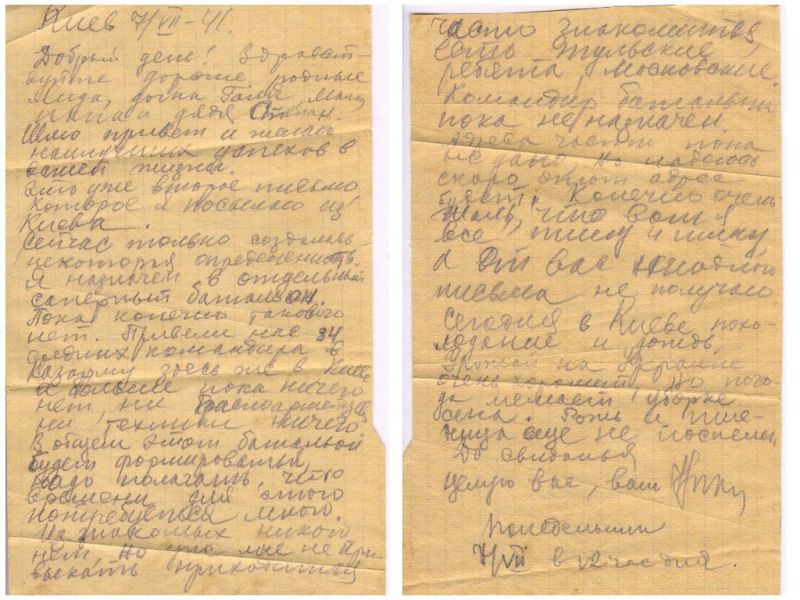 Киев 7/VII-41.
Добрый день! Здравст-
вуйте дорогие родные
Лида, дочка Галя, мама
папа и дядя Степан.
Шлю привет и желаю
наилучших успехов в
вашей жизни.
Это уже второе письмо
которое я посылаю из
Киева.
Сейчас только создалась
некоторая определенность.
Я назначен в отдельный
саперный батальон.
Пока конечно такового
нет. Привели нас 34
средних командира в
казарму здесь же в Киеве
а больше пока ничего
нет, ни красноармейцев
ни техники ничего
В общем этот батальон
будет формироваться,
надо полагать, что
времени для этого
потребуется много.
Из знакомых никого
нет, но что мне не при-
выкать приходится
часто знакомиться,
есть тульские
ребята, московские.
Командир батальона
пока не назначен.
Адреса части пока
не дано. Но надеюсь
скоро адрес
будет. Конечно очень
жаль, что вот я
все пишу и пишу
а от вас ни одного
письма не получаю
Сегодня в Киеве похо-
лодание и дождь
Урожай на Украине
очень хороший. Но пого-
да мешает уборке
сена. Рожь и пше-
ница еще не поспели.
До свиданья
целую вас, ваш
Понедельник
7/VII в 12 час дня.